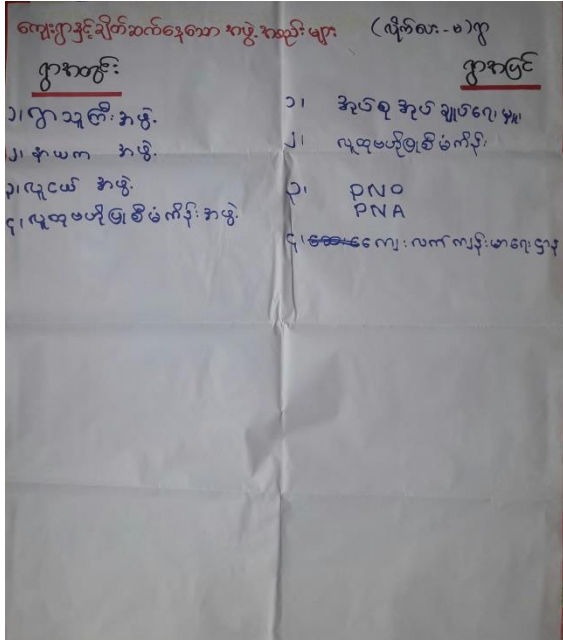 ကျေးရွာနှင့်ချိတ်ဆက်နေသော အဖွဲ့အစည်းများ (လိုက်လား-မ) ရွာ
ရွာအတွင်း
၁၊ ရွာသူကြီး အဖွဲ့
၂၊ နာယက အဖွဲ့
၃၊ လူငယ် အဖွဲ့
၄၊ လူထုဗဟိုပြုစီမံကိန်း အဖွဲ့
ရွာအပြင်
၁၊ အုပ်စု အုပ်ချုပ်ရေးမှူး
၂၊ လူထုဗဟိုပြုစီမံကိန်း
၃၊ PNO
PNA
၄၊ ကျေးလက်ကျန်းမာရေးဌာန